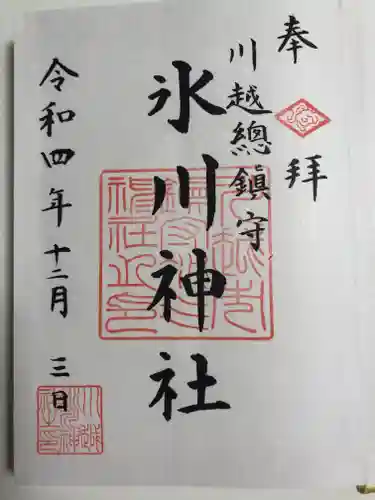 奉拜
川越總鎮守
氷川神社
令和四年十二月三日